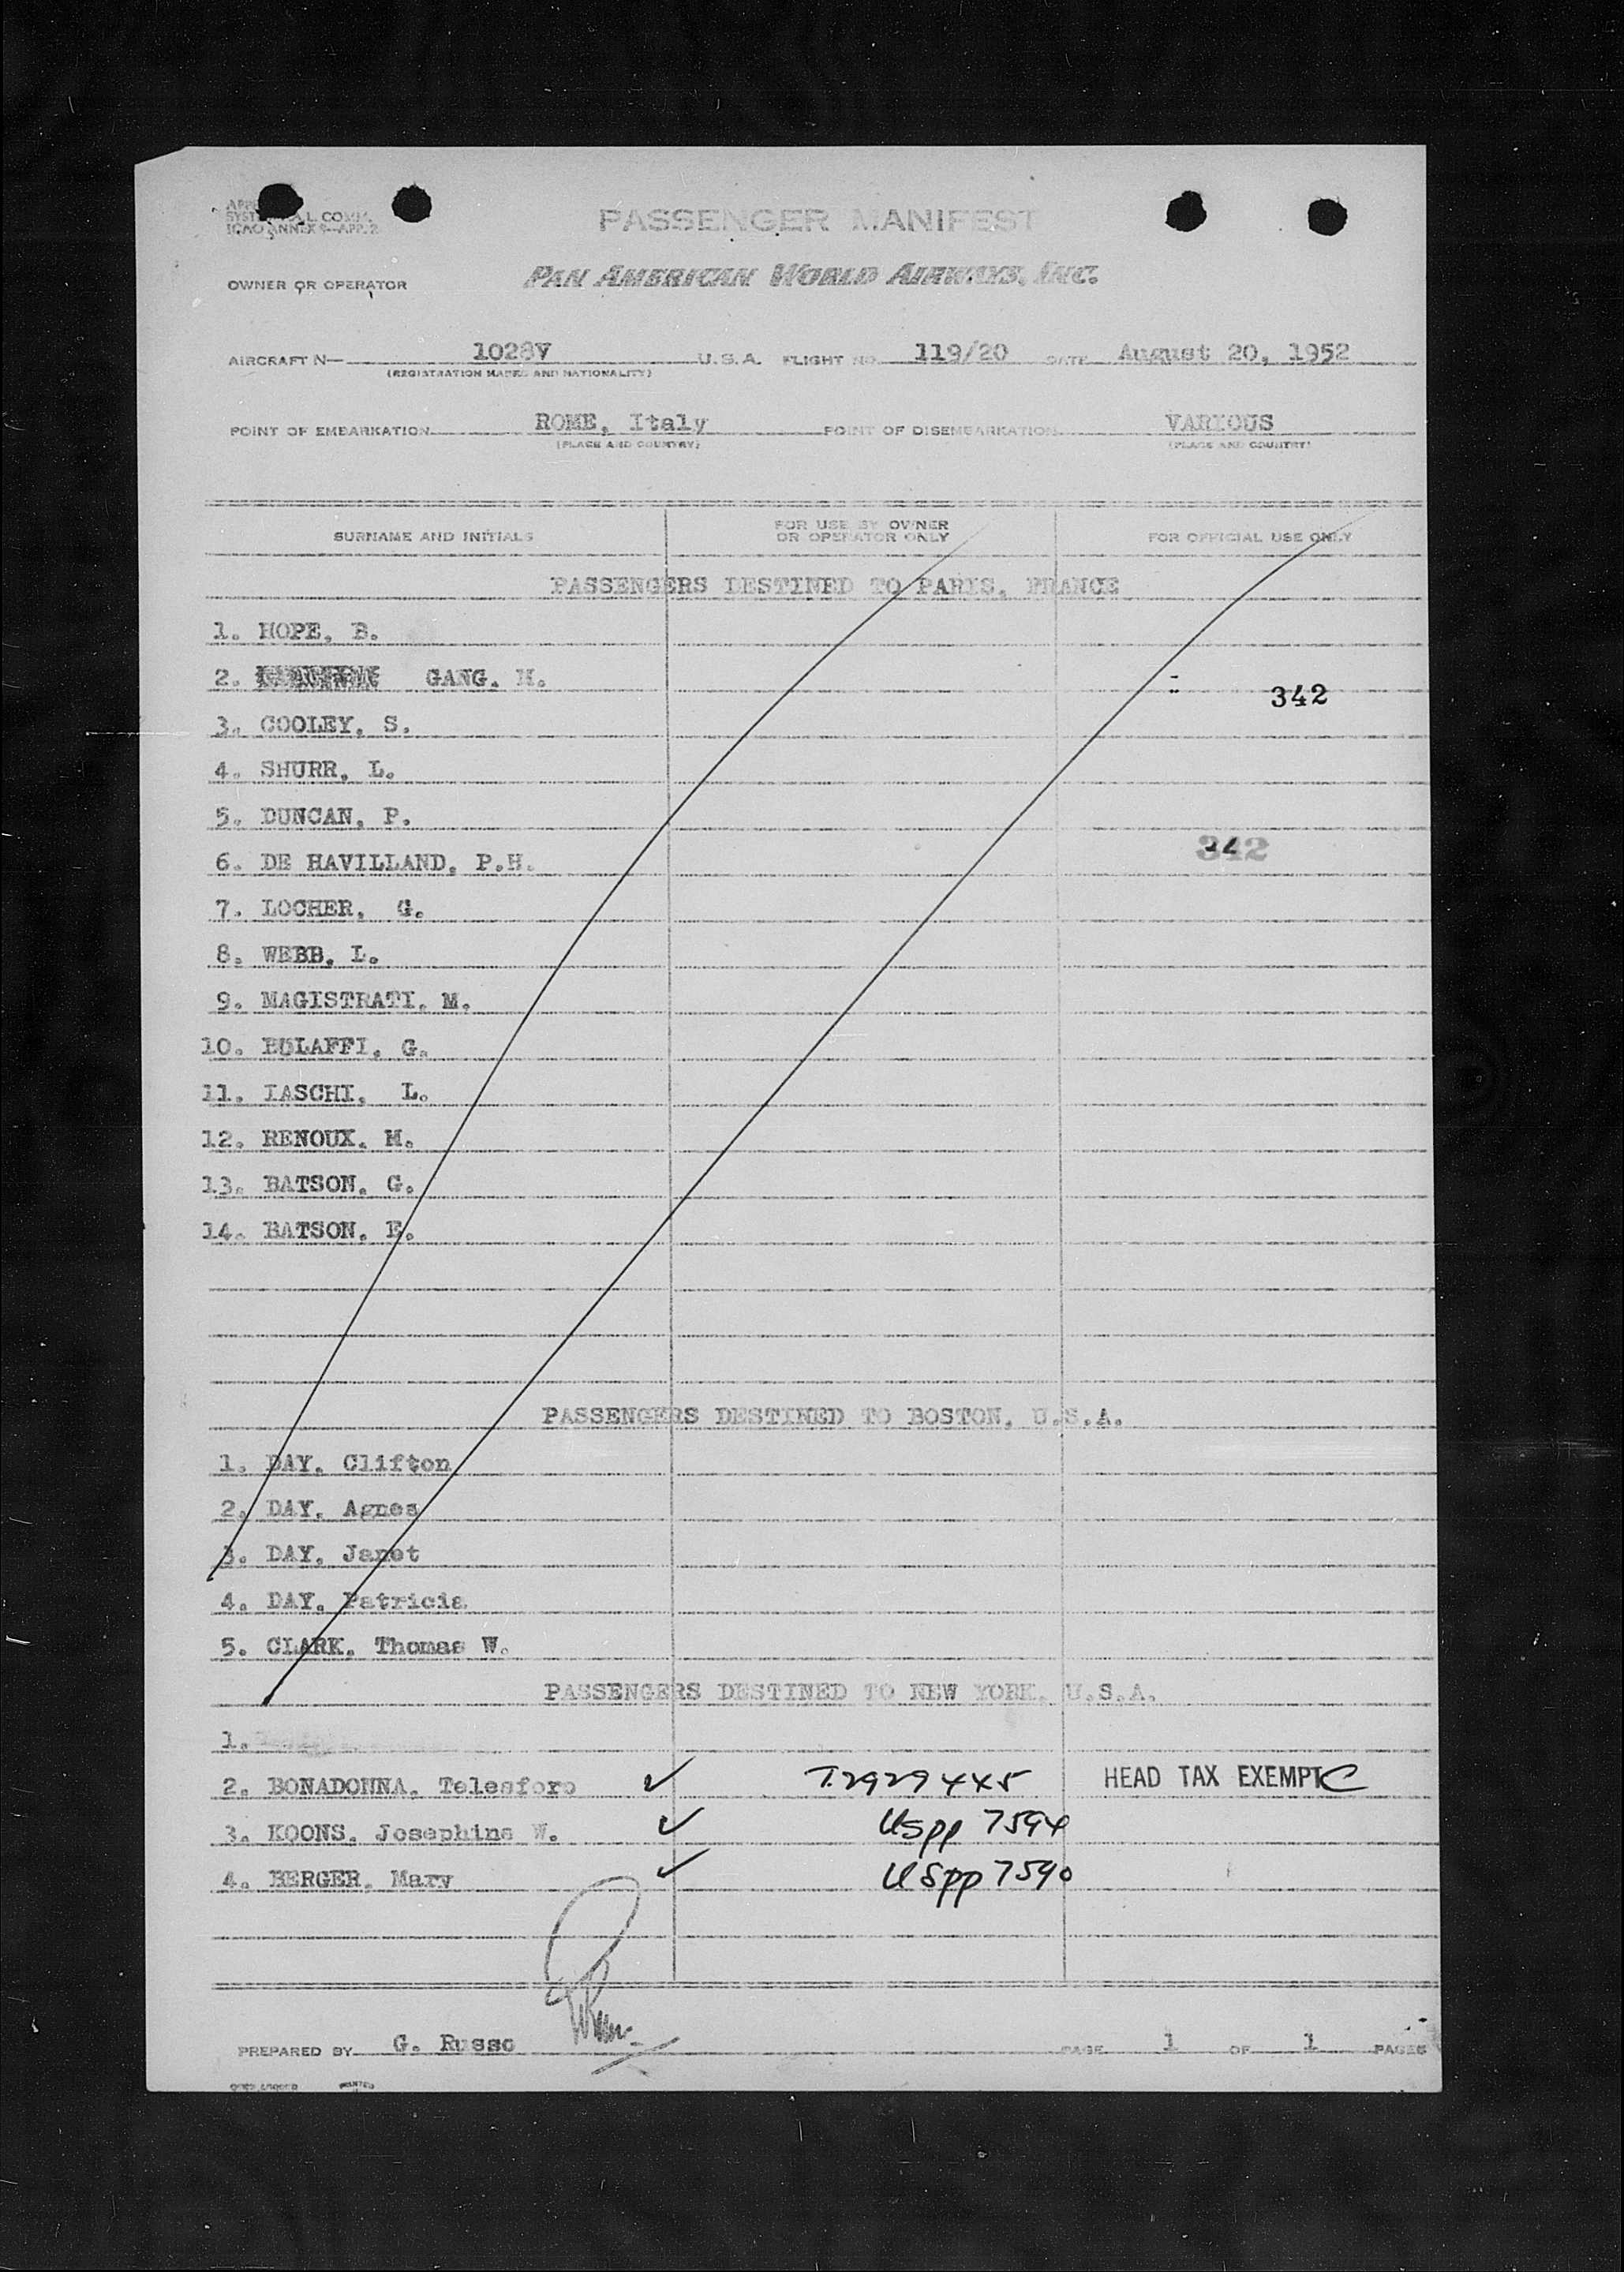 L. COMM.
ICAO ANNEX 9—APP. 2
PASSENGER MANIFEST
OWNER OR OPERATOR
PAN AMERICAN WORLD AIRWAYS, INC.
AIRCRAFT N— 1028V U.S.A. FLIGHT NO. 119/20 DATE August 20, 1952
(REGISTRATION MARKS AND NATIONALITY)
POINT OF EMBARKATION ROME, Italy POINT OF DISEMBARKATION VARIOUS
(PLACE AND COUNTRY) (PLACE AND COUNTRY)
SURNAME AND INITIALS FOR USE BY OWNER OR OPERATOR ONLY FOR OFFICIAL USE ONLY
PASSENGERS DESTINED TO PARIS, FRANCE
1. HOPE, B.
2. GANG. M.
342
3. COOLEY, S.
4. SHURR, L.
5. DUNCAN, P.
342
6. DE HAVILLAND, P.H.
7. LOCHER, G.
8. WEBB, L.
9. MAGISTRATI, M.
10. BOLAFFI, G.
11. IASCHI, L.
12. RENOUX, M.
13. BATSON, G.
14. BATSON, E.
PASSENGERS DESTINED TO BOSTON, U.S.A.
1. DAY, Clifton
2. DAY, Agnes
3. DAY, Janet
4. DAY, Patricia
5. CLARK, Thomas W.
PASSENGERS DESTINED TO NEW YORK, U.S.A.
1.
2. BONADONNA, Telesforo ✓ T2929445 HEAD TAX EXEMPT C
3. KOONS, Josephine W. ✓ USpp 7594
4. BERGER, Mary ✓ USpp 7590
PREPARED BY G. Russo PAGE 1 OF 1 PAGES